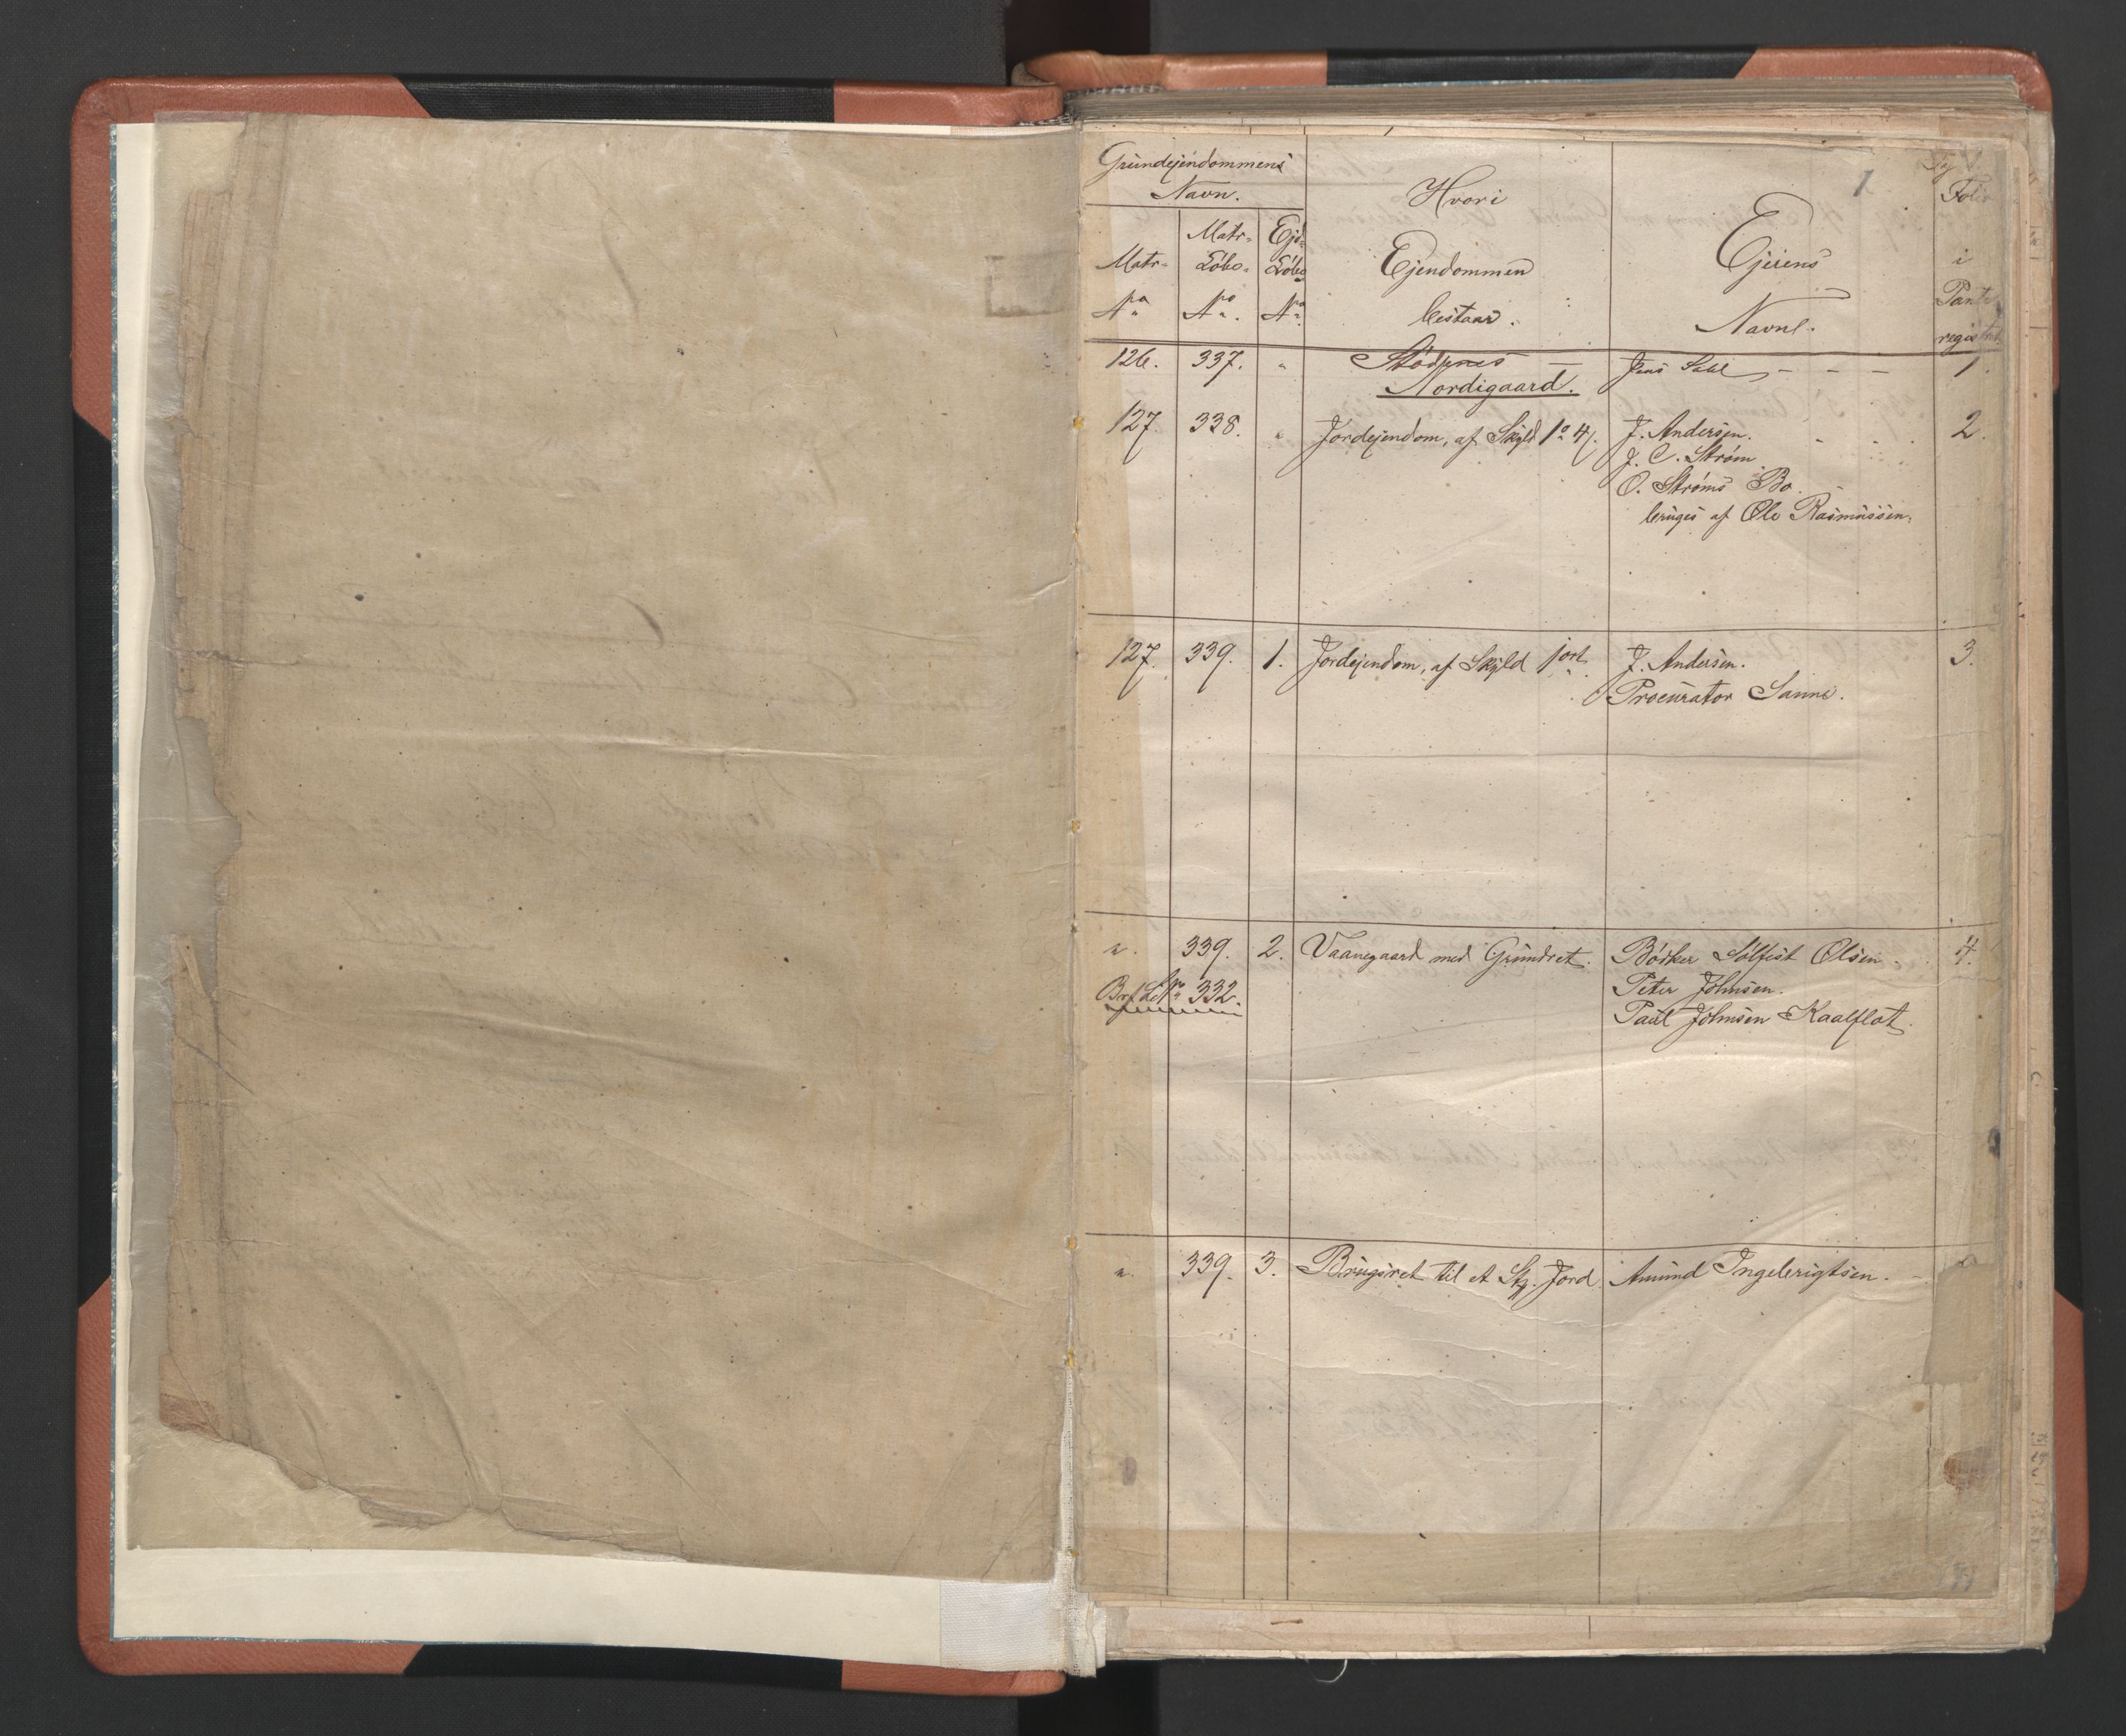 1
Grundejendommens
Navn.
Matr-
No
Matr-
Löbe-
No.
Ejd-
Löbe
No
Hvori
Ejendommen
bestaar.
Ejerens
Navne.
Folio
i
Pante
registret
126. 337. " Stödsnes - Jens Dahl - - - 1.
Nordigaard.
127. 338. " Jordejendom, af Skyld 1 o 4/. J. Andersen. - - - 2.
J. C. Strøm
O. Strøms Bo. -
bruges af Ole Rasmussen.
127. 339. 1. Jordejendom, af Skyld 1 ort J. Andersen. 3.
Procurator Sanne.
". 339. 2. Vaanegaard med Grundret. Bödker Sølfest Olsen - 4.
Brf. L No 332. Peter Johnsen.
Paul Johnsen Kaalflot.
". 339. 3. Brugsret til et Stk. Jord. Amund Ingebrigtsen. -